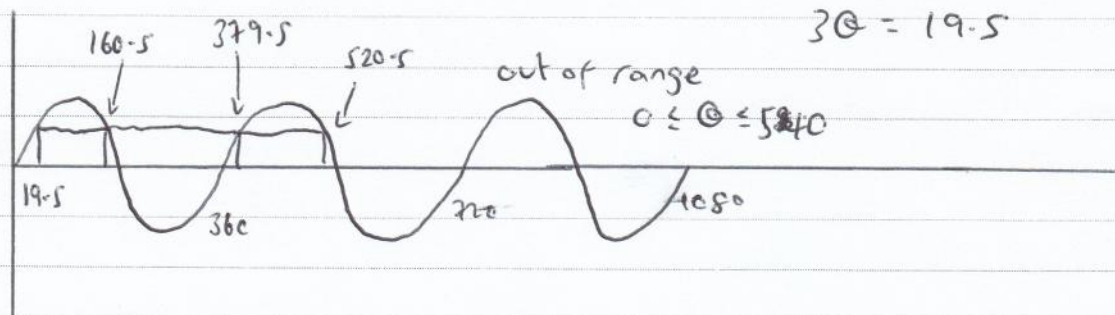 3θ = 19.5
160.5 379.5 520.5
out of range
0 ≤ θ ≤ 540
19.5 360 720 1080